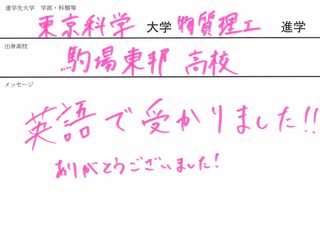 進学先大学 学部・科類等
東京科学 大学 物質理工 進学
出身高校
駒場東邦 高校
メッセージ
英語で受かりました!!
ありがとうございました!